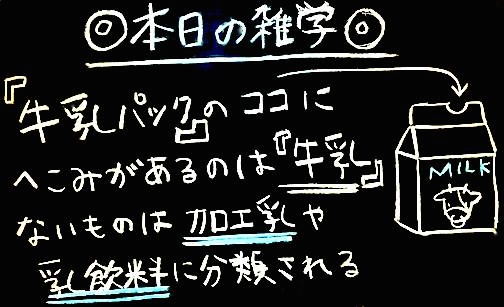 ◎本日の雑学◎
『牛乳パック』のココに
へこみがあるのは『牛乳』
ないものは加工乳や
乳飲料に分類される
MILK